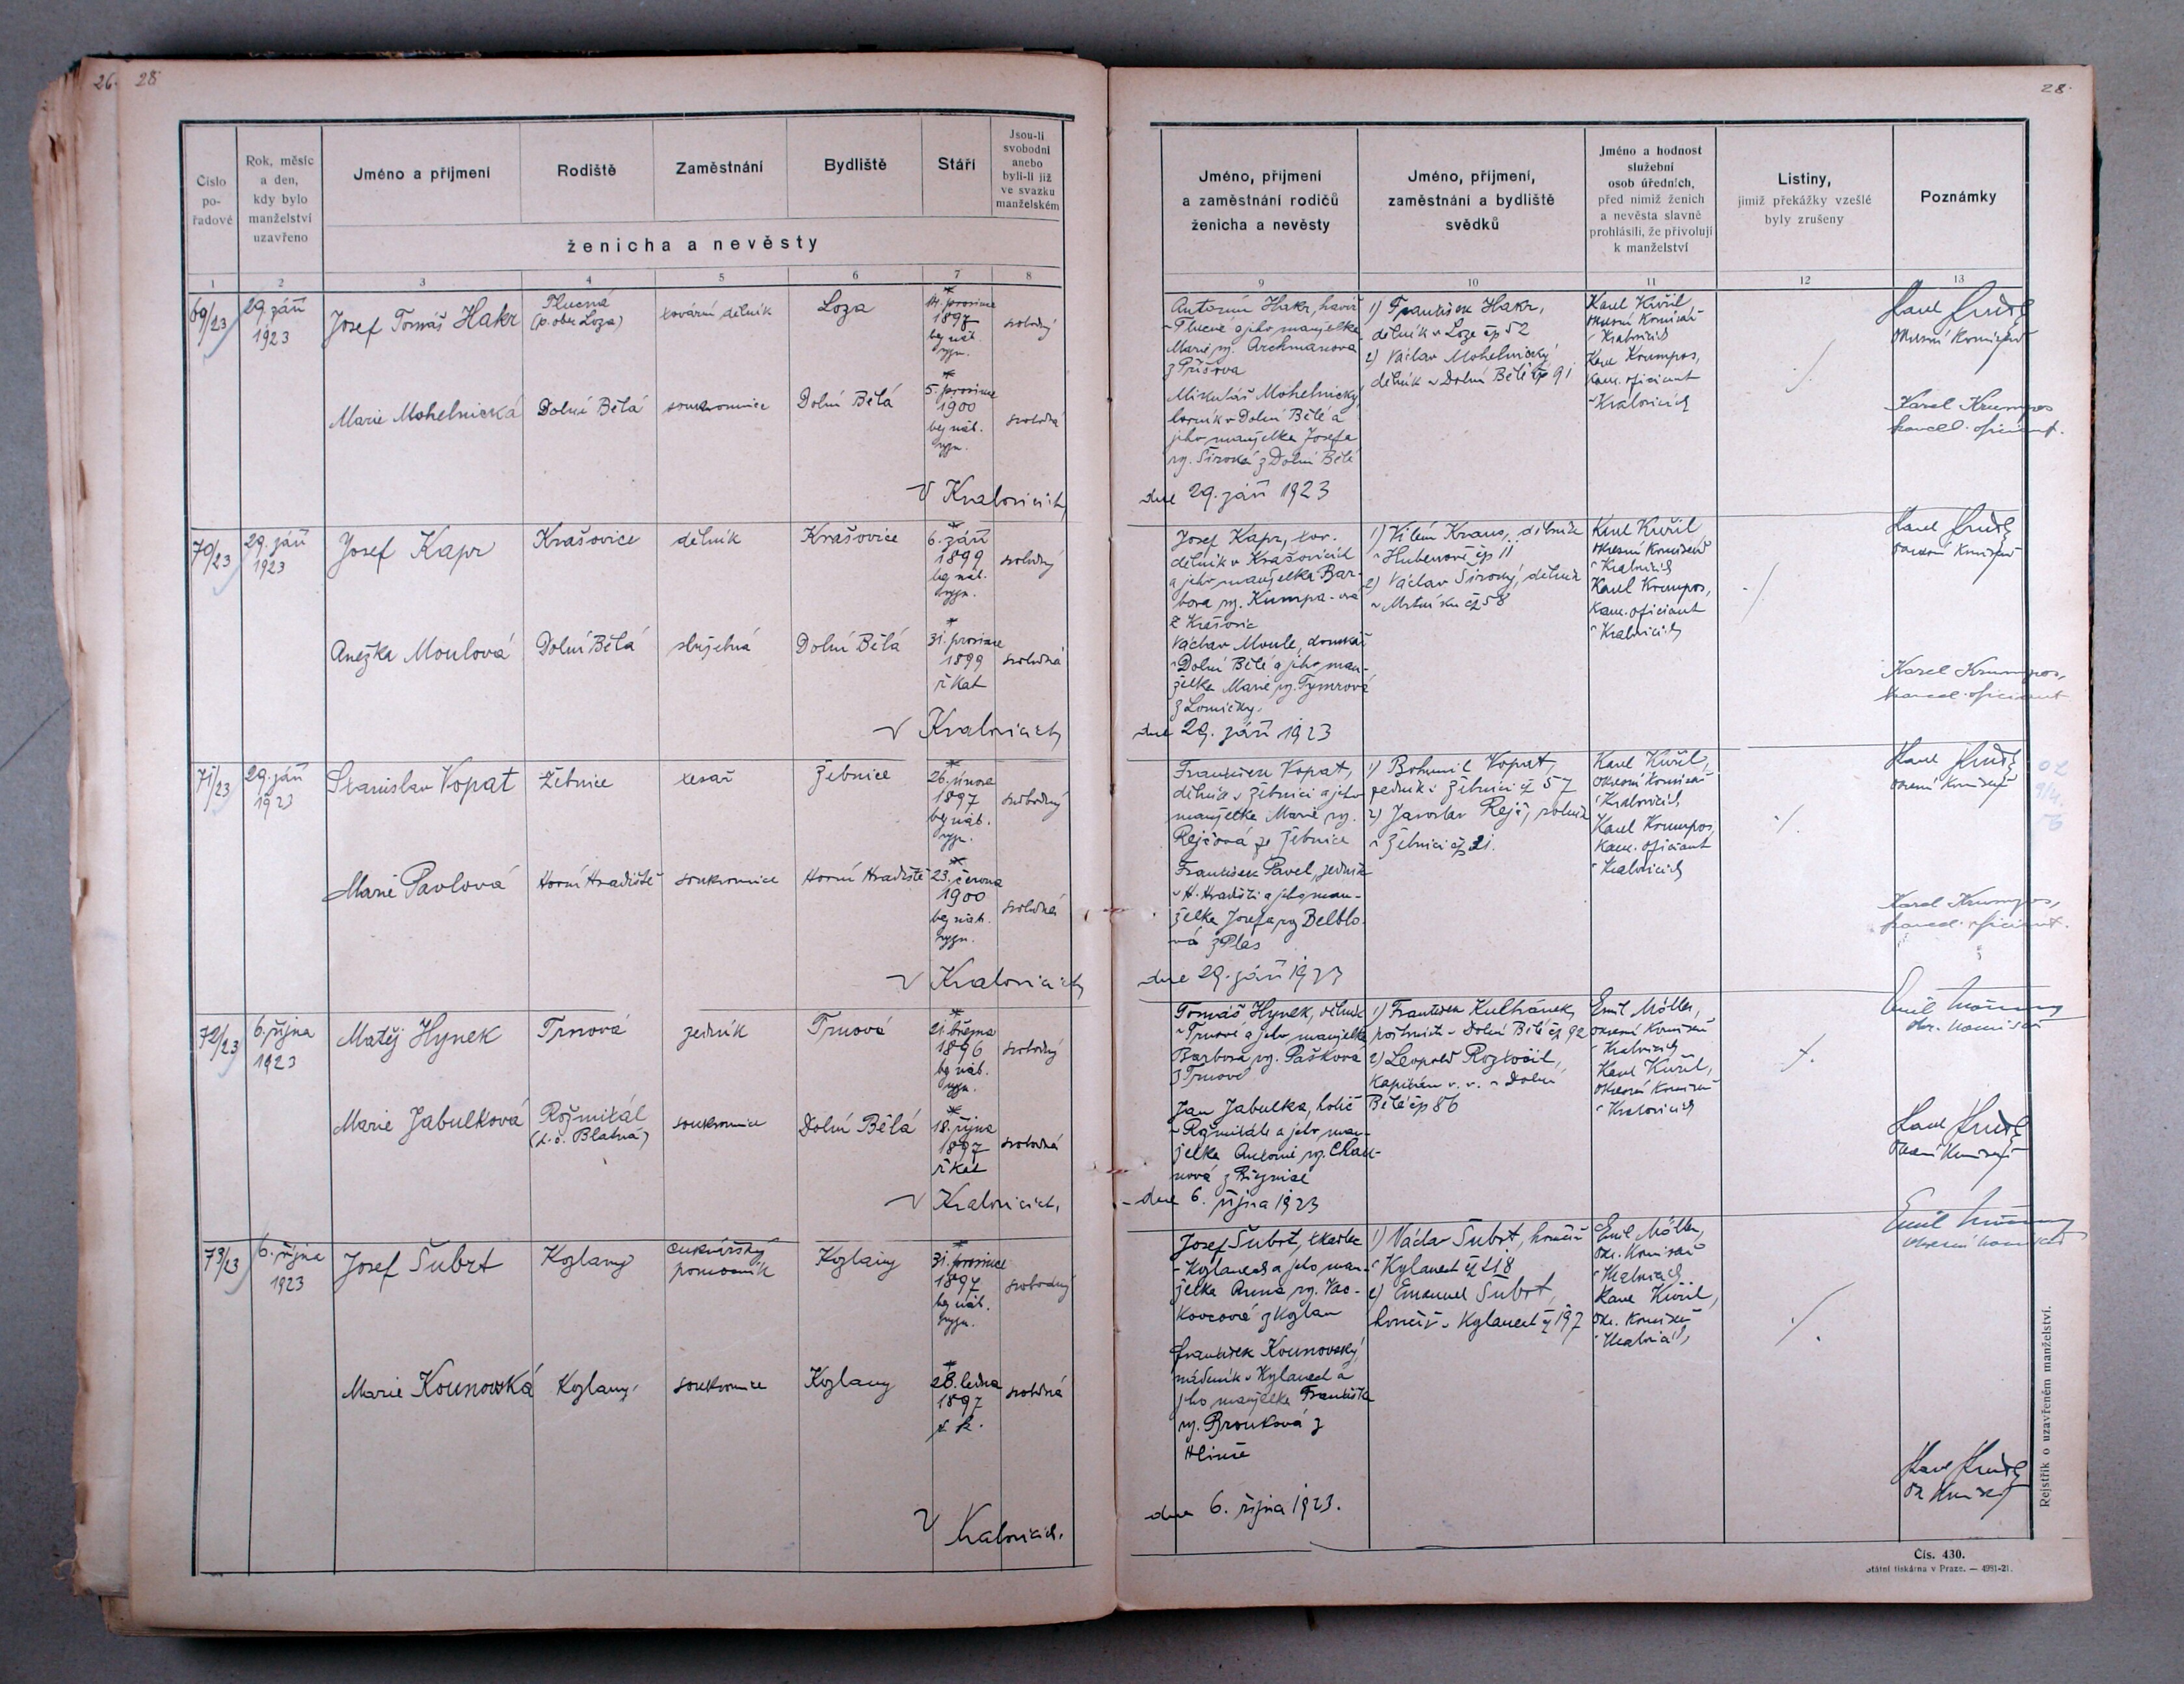 26. 28
28.
Číslo pořadové
Rok, měsíc a den, kdy bylo manželství uzavřeno
Jméno a příjmení
Rodiště
Zaměstnání
Bydliště
Stáří
Jsou-li svobodni anebo byli-li již ve svazku manželském
ženicha a nevěsty
Jméno, příjmení a zaměstnání rodičů ženicha a nevěsty
Jméno, příjmení, zaměstnání a bydliště svědků
Jméno a hodnost služební osob úředních, před nimiž ženich a nevěsta slavně prohlásili, že přivolují k manželství
Listiny, jimiž překážky vzešlé byly zrušeny
Poznámky
1 2 3 4 5 6 7 8 9 10 11 12 13
69/23
29. září
1923
Josef Tomáš Hakr
Tlucná
(p. obec Loza)
tovární dělník
Loza
* 14. prosince
1897
bez náb.
vyzn.
svobodný
Antonín Hakr, havíř
v Tlucné a jeho manželka
Marie roz. Archmanova
z Příšova
1) František Hakr,
dělník v Loze čp 52
2) Václav Mohelnický
dělník v Dolní Bělé čp 91
Karel Kuřil,
okresní komisař
v Kralovicích
Karel Krumpos,
kanc. oficiant
v Kralovicích
okresní komisař
Marie Mohelnická
Dolní Bělá
soukromnice
Dolní Bělá
* 5. prosince
1900
bez náb.
vyzn.
svobodná
Mikuláš Mohelnický
v Dolní Bělé a
jeho manželka Josefa
roz. Široká z Dolní Bělé
Karel Krumpos
kancel. oficiant.
V Kralovicích
dne 29. září 1923
70/23
29. září
1923
Josef Kapr
Krašovice
dělník
Krašovice
* 6. září
1899
bez náb.
vyzn.
svobodný
Josef Kapr, tov.
dělník v Krašovicích
a jeho manželka Bar-
bora roz. Kumpa-ová
z Krašovic
1) Vilém Kraus, dělník
v Hubenově čp 11
2) Václav Široký, dělník
v Mrtníku čp 58
Karel Kuřil
okresní komisař
v Kralovicích
Karel Krumpos,
kanc. oficiant
v Kralovicích
okresní komisař
Anežka Moulová
Dolní Bělá
služebná
Dolní Bělá
* 31. prosince
1899
ř. kat
svobodná
Václav Moule, domkář
v Dolní Bělé a jeho man-
želka Marie roz. Tymrová
z Lomičky.
Karel Krumpos,
kancel. oficiant
V Kralovicích
dne 29. září 1923
71/23
29. září
1923
Stanislav Vopat
Žebnice
tesař
Žebnice
* 26. února
1897
bez náb.
vyzn.
svobodný
František Vopat,
dělník v Žebnici a jeho
manželka Marie roz.
Rejčová ze Žebnice
1) Bohumil Vopat,
zedník v Žebnici čp 57
2) Jaroslav Rejč, rolník
v Žebnici čp 21.
Karel Kuřil,
okresní komisař
v Kralovicích
Karel Krumpos,
kanc. oficiant
v Kralovicích
okresní komisař
Marie Pavlová
Horní Hradiště
soukromnice
Horní Hradiště
* 23. června
1900
bez náb.
vyzn.
svobodná
František Pavel, zedník
v H. Hradišti a jeho man-
želka Josefa roz Belblo-
vá z Plas
Karel Krumpos,
kancel. oficiant.
V Kralovicích
dne 29. září 1923
72/23
6. října
1923
Matěj Hynek
Trnová
zedník
Trnová
* 21. března
1896
bez náb.
vyzn.
svobodný
Tomáš Hynek, dělník
v Trnové a jeho manželka
Barbora roz. Pašková
z Trnové
1) František Kulhánek,
v Dolní Bělé čp 92
2) Leopold Rozkošil,
kapitán v. v. v Dolní
Bělé čp 86
Emil Möller,
okresní komisař
v Kralovicích
Karel Kuřil,
okresní komisař
v Kralovicích
okr. komisař
Marie Jabulková
Rožmitál
(s. o. Blatná)
soukromnice
Dolní Bělá
* 18. října
1897
ř. kat
svobodná
Jan Jabulka, holič
v Rožmitále a jeho man-
želka Antonie roz. Chau-
nová z Březnice
okresní komisař
V Kralovicích,
dne 6. října 1923
73/23
6. října
1923
Josef Šubrt
Kožlany
cukrářský
pomocník
Kožlany
* 31. prosince
1897
bez náb.
vyzn.
svobodný
Josef Šubrt, tkadlec
v Kožlanech a jeho man-
želka Anna roz. Vac-
kovcová z Kožlan
1) Václav Šubrt, hončíř
v Kožlanech čp 218
2) Emanuel Šubrt,
v Kožlanech čp 197
Emil Möller,
okr. komisař
v Kralovicích
Karel Kuřil,
okr. komisař
v Kralovicích
okresní komisař
Marie Kounovská
Kožlany
soukromnice
Kožlany
* 28. ledna
1897
ř. k.
svobodná
František Kounovský,
nádeník v Kožlanech a
jeho manželka Františka
roz. Brouková z
Hlince
V Kralovicích.
dne 6. října 1923.
Rejstřík o uzavřeném manželství.
Čís. 430.
Státní tiskárna v Praze. — 4991-21.